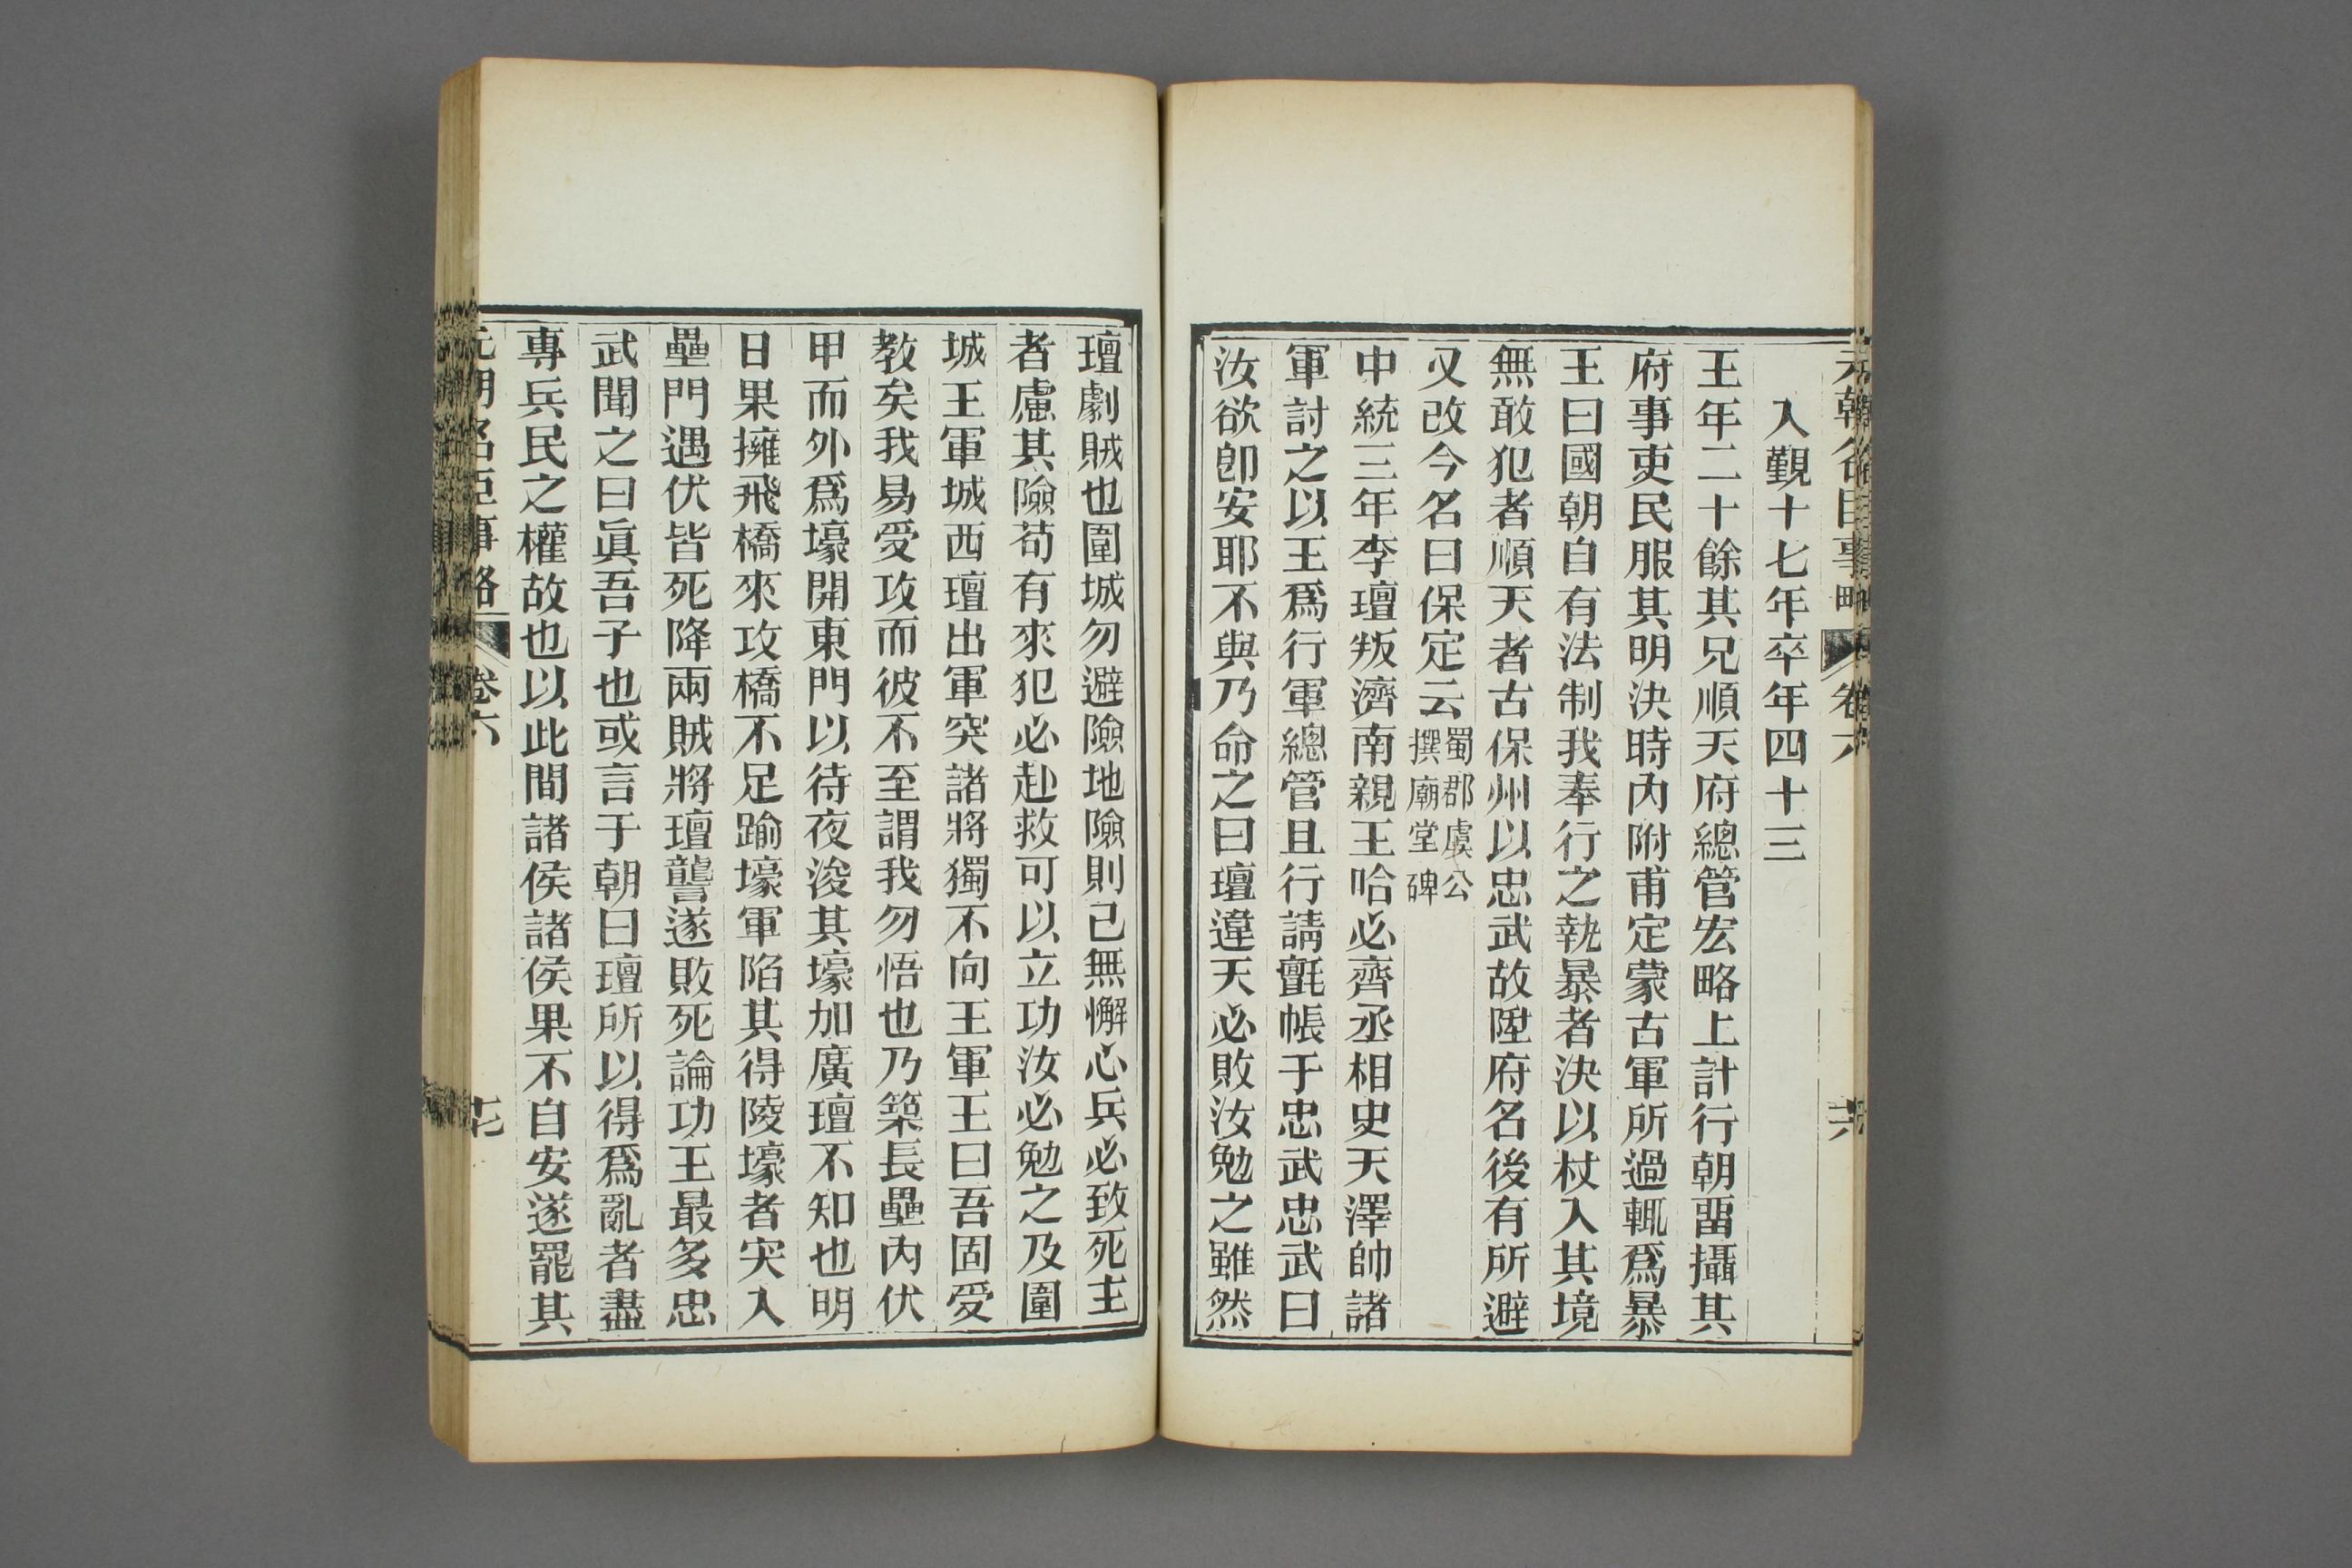 入覲十七年卒年四十三
王年二十餘其兄順天府總管宏略上計行朝畱攝其
府事吏民服其明決時內附甫定蒙古軍所過輒爲暴
王曰國朝自有法制我奉行之執暴者決以杖入其境
無敢犯者順天者古保州以忠武故陞府名後有所避
又改今名曰保定云蜀郡虞公撰廟堂碑
中統三年李璮叛濟南親王哈必齊丞相史天澤帥諸
軍討之以王爲行軍總管且行請氊帳于忠武忠武曰
汝欲卽安耶不與乃命之曰璮違天必敗汝勉之雖然
璮劇賊也圍城勿避險地險則己無懈心兵必致死主
者慮其險苟有來犯必赴救可以立功汝必勉之及圍
城王軍城西璮出軍突諸將獨不向王軍王曰吾固受
教矣我易受攻而彼不至謂我勿悟也乃築長壘內伏
甲而外爲壕開東門以待夜浚其壕加廣璮不知也明
日果擁飛橋來攻橋不足踰壕軍陷其得陵壕者突入
壘門遇伏皆死降兩賊將璮讋遂敗死論功王最多忠
武聞之曰眞吾子也或言于朝曰璮所以得爲亂者盡
專兵民之權故也以此間諸侯諸侯果不自安遂罷其
元朝名臣事略 卷六 十七